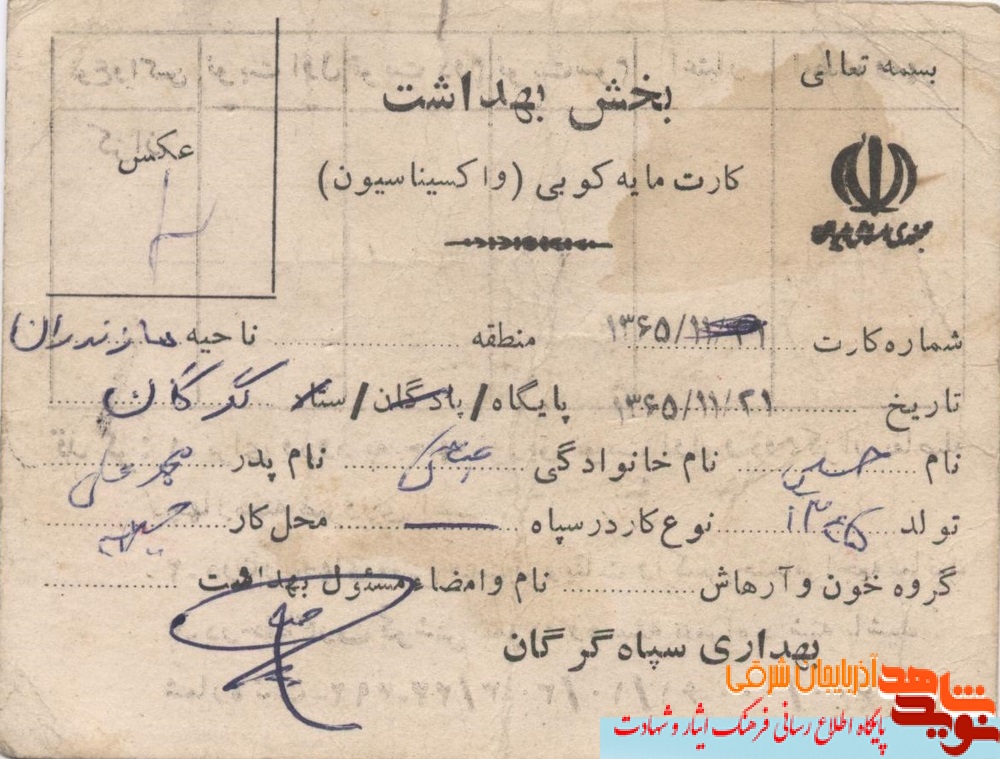 بسمه تعالی
بخش بهداشت
عکس
کارت مایه کوبی (واکسیناسیون)
جمهوری اسلامی ایران
شماره کارت ۱۳۶۵/۱۱ ۲۱ منطقه ناحیه مازندران
تاریخ ۱۳۶۵/۱۱/۲۱ پایگاه/پادگان/ستاد گرگان
نام حسین نام خانوادگی عباسی نام پدر محمد علی
تولد ۱۳۴۵ نوع کار در سپاه محل کار
گروه خون و آرهاش نام و امضاء مسئول بهداشت
بهداری سپاه گرگان
نوید شاهد آذربایجان شرقی
پایگاه اطلاع رسانی فرهنگ ایثار و شهادت